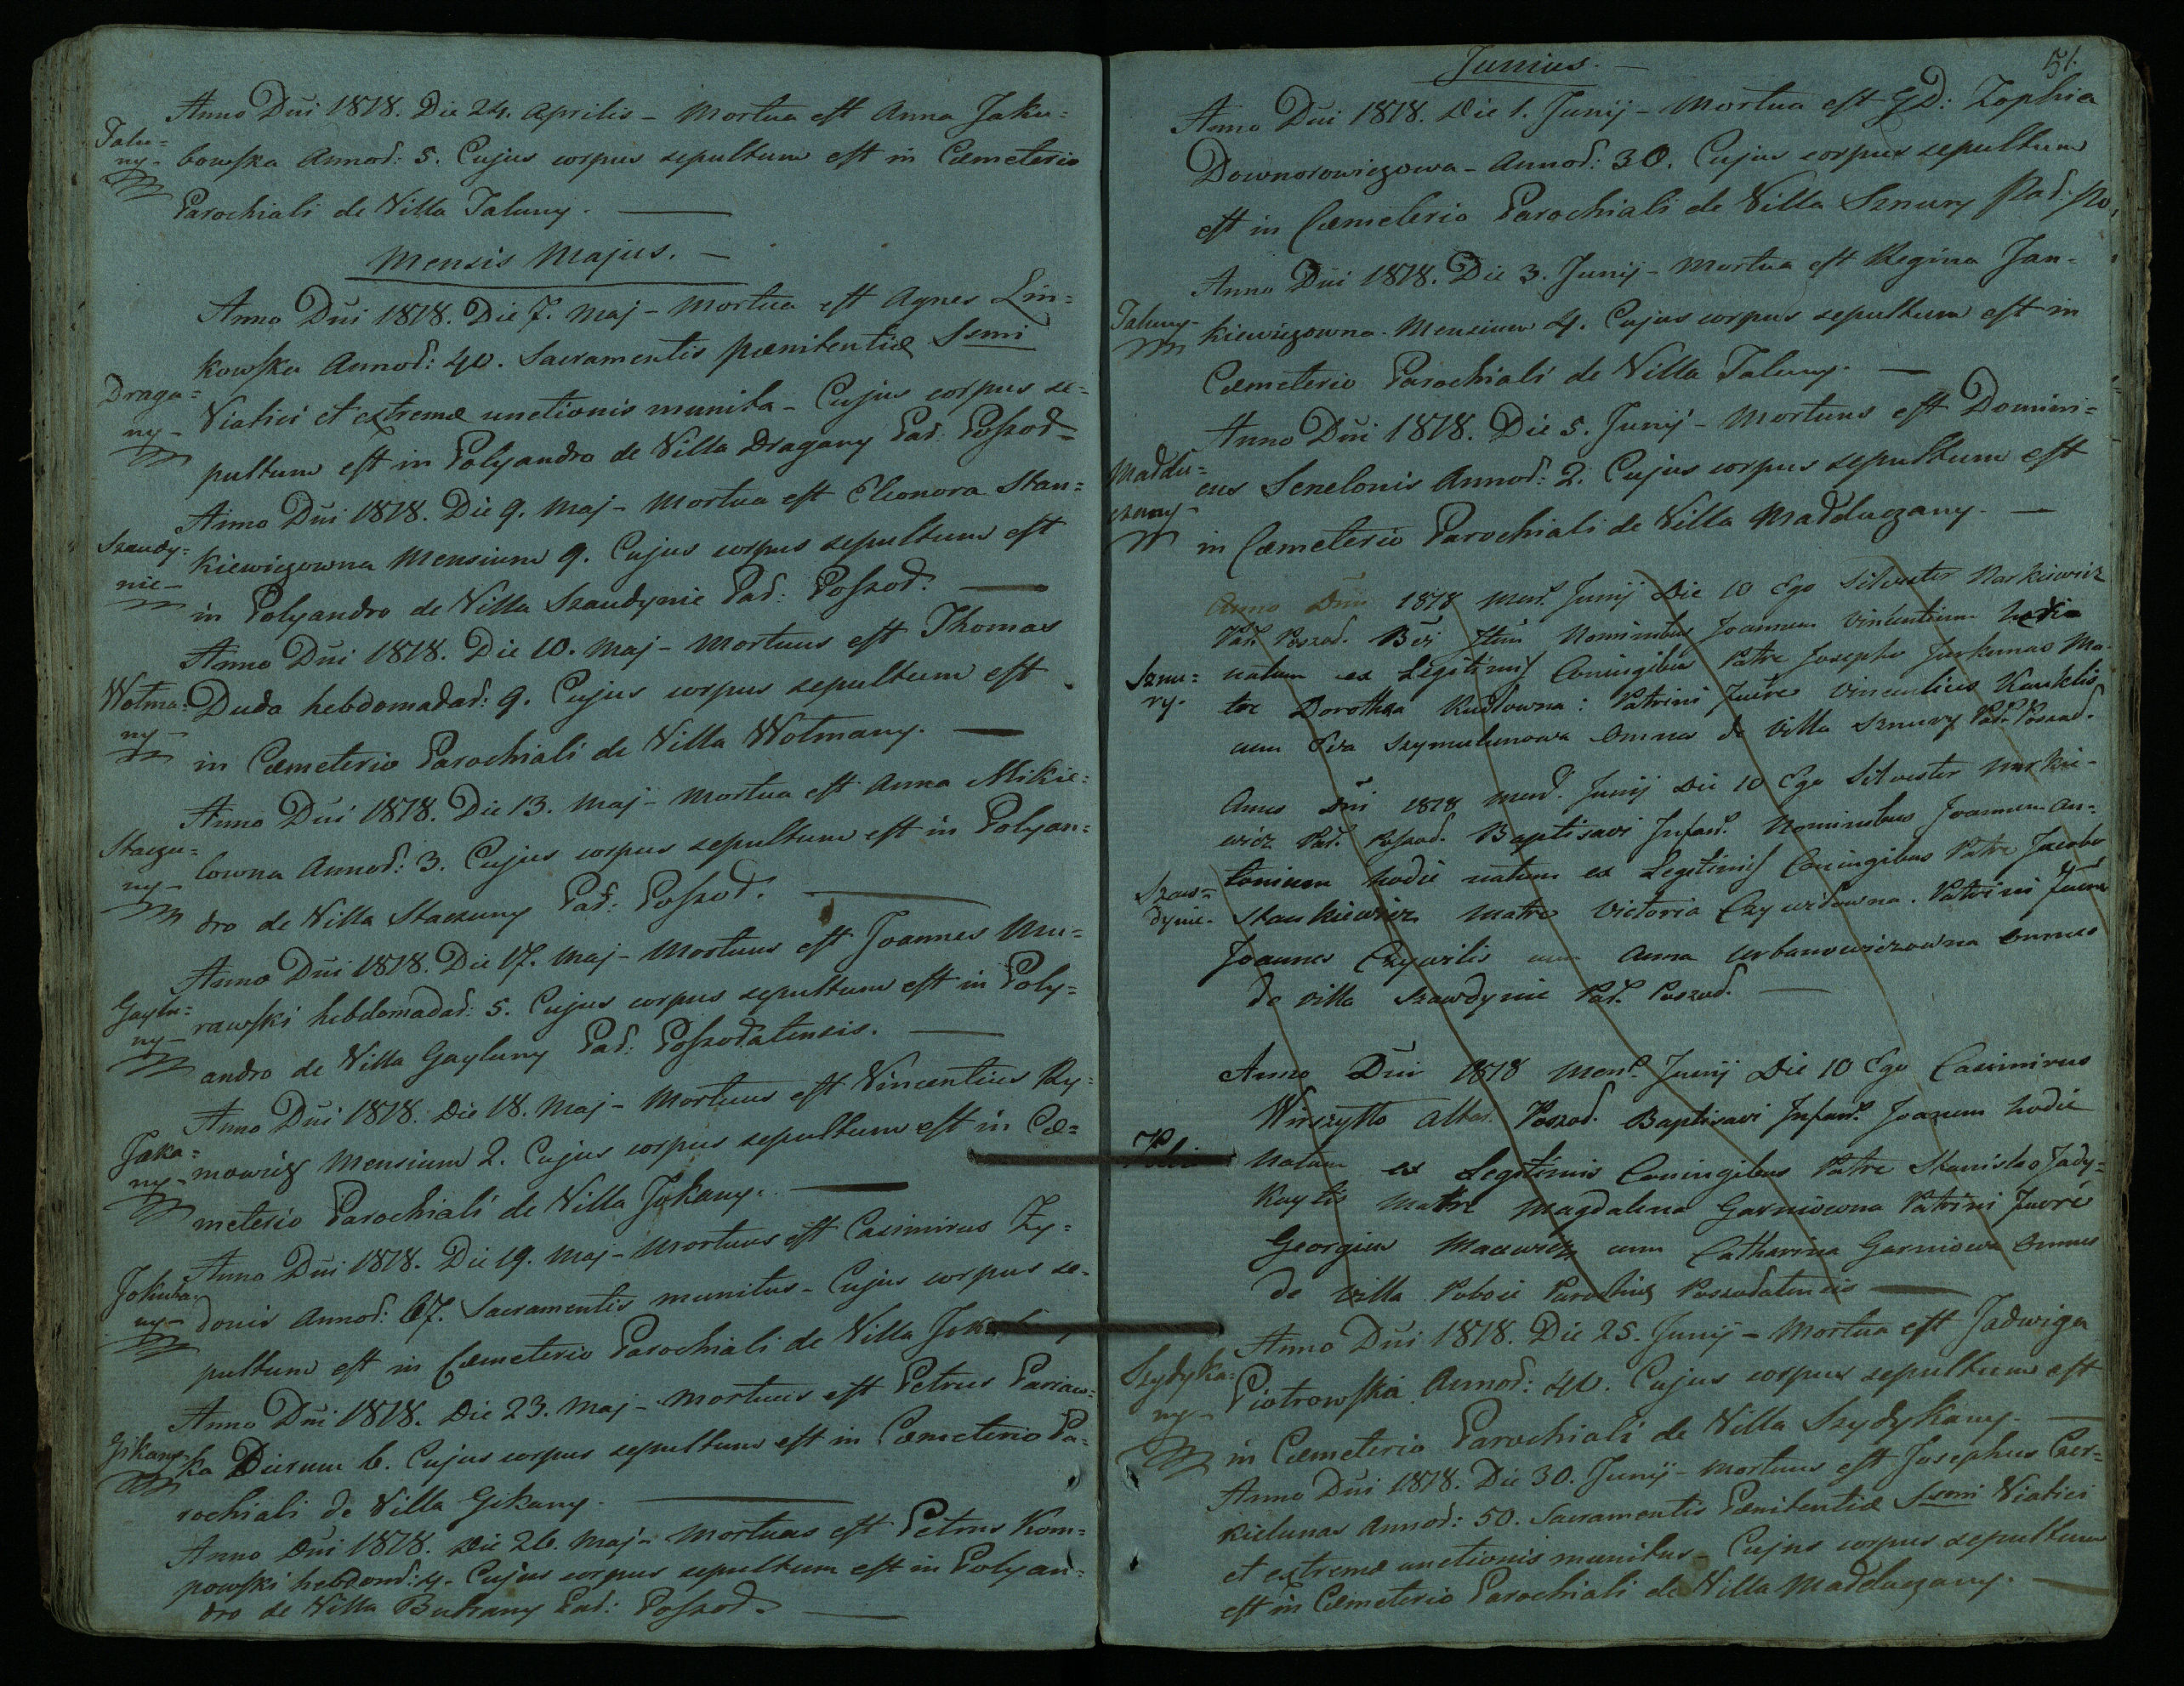 Anno Dni 1818. Die 24. Aprilis - Mortua est Anna Jaku=
Talu=
ny-
bowska Annor: 5. Cujus corpus sepultum est in Cæmeterio
Parochiali de Villa Taluny.
Mensis Majus. -
Anno Dni 1818. Die 7. Maj - Mortua est Agnes Lin=
kowska Annor: 40. Sacramentis pænitentiæ Ssmi
Draga=
ny-
Viatici et extremæ unctionis munita - Cujus corpus se-
pultum est in Polyandro de Villa Dragany Par: Poszod-
Anno Dni 1818. Die 9. Maj - Mortua est Eleonora Stan=
Szaudy=
nie-
kiewiczowna Mensium 9. Cujus corpus sepultum est
in Polyandro de Villa Szaudynie Par: Poszod:
Anno Dni 1818. Die 10. Maj - Mortuus est Thomas
Wotma=
ny-
Duda hebdomadar: 9. Cujus corpus sepultum est
in Cæmeterio Parochiali de Villa Wotmany.
Anno Dni 1818. Die 13. Maj - Mortua est Anna Mikie=
Staczu=
ny-
lowna Annor: 3. Cujus corpus sepultum est in Polyan=
dro de Villa Staczuny Par: Poszod:
Anno Dni 1818. Die 17. Maj - Mortuus est Joannes Mu=
Gaylu=
ny-
rawski hebdomadar: 5. Cujus corpus sepultum est in Poly=
andro de Villa Gayluny Par: Poszodatensis.
Anno Dni 1818. Die 18. Maj - Mortuus est Vincentius Ry=
Joka=
ny-
mowicz Mensium 2. Cujus corpus sepultum est in Cæ=
meterio Parochiali de Villa Jokany.
Anno Dni 1818. Die 19. Maj - Mortuus est Casimirus Zy=
Jokuba
ny-
donis Annor: 67. Sacramentis munitus - Cujus corpus se-
pultum est in Cæmeterio Parochiali de Villa
Anno Dni 1818. Die 23. Maj - Mortuus est Petrus Pariaw=
Gikany-
ka Dierum 6. Cujus corpus sepultum est in Cæmeterio Pa=
rochiali de Villa Gikany.
Anno Dni 1818. Die 26. Maj - Mortuus est Petrus Kom=
powski hebdomd: 4. Cujus corpus sepultum est in Polyan=
dro de Villa Butrany Par: Poszod-
51.
Junius. -
Anno Dni 1818. Die 1. Junij - Mortua est GD: Zophia
Downorowiczowa - Annor: 30. Cujus corpus sepultum
est in Cæmeterio Parochiali de Villa Sznury Par: Po
Anno Dni 1818. Die 3. Junij - Mortua est Regina Jan-
Taluny-
kiewiczowna Mensium 4. Cujus corpus sepultum est in
Cæmeterio Parochiali de Villa Taluny.
Anno Dni 1818. Die 5. Junij - Mortuus est Domini=
Maddu=
czany-
cus Senelonis Annor: 2. Cujus corpus sepultum est
in Cæmeterio Parochiali de Villa Madduczany.
Anno Dni 1818 Mens. Junij Die 10 Ego Silvester Narkiewicz
Par. Poszod. Nominibus Joannem Vincentium hodie
Sznu=
ry-
natum ex Legitimis Coniugibus Patre Josepho Jurkunas Ma-
tre Dorothea Kudlowna: Patrini Fuere Vincentius Kauklis
cum Eva Szymulunowa Omnes de Villa Sznury Par. Poszod.
Anno Dni 1818 Mens. Junij Die 10 Ego Silvester Narkie-
wicz Par. Poszod. Baptisavi Infan. Nominibus Joannem An=
tonium hodie natum ex Legitimis Coniugibus Patre Jacobo
Szaw=
dynie-
Stankiewicz Matre Victoria Czywidowna. Patrini Fuere
Joannes Czywilis cum Anna Urbanowiczowna Omnes
de villa Szawdynie Par. Poszod.
Anno Dni 1818 Mens. Junij Die 10 Ego Casimirus
Wirszyllo Altar. Poszod. Baptisavi Infan. Joannem hodie
natum ex Legitimis Coniugibus Patre Stanislao Jady=
kaytis Matre Magdalena Garniowna Patrini Fuere
Georgius Macewicz cum Catharina Garniowa Omnes
de villa Poboie Parochiæ Poszodatensis
Anno Dni 1818. Die 25. Junij - Mortua est Jadwiga
Szydyka=
ny-
Piotrowska Annor: 40. Cujus corpus sepultum est
in Cæmeterio Parochiali de Villa Szydykany.
Anno Dni 1818. Die 30. Junij - Mortuus est Josephus Czer=
kielunas Annor: 50. Sacramentis Pænitentiæ Ssmi Viatici
et extremæ unctionis munitus - Cujus corpus sepultum
est in Cæmeterio Parochiali de Villa Madduczany.